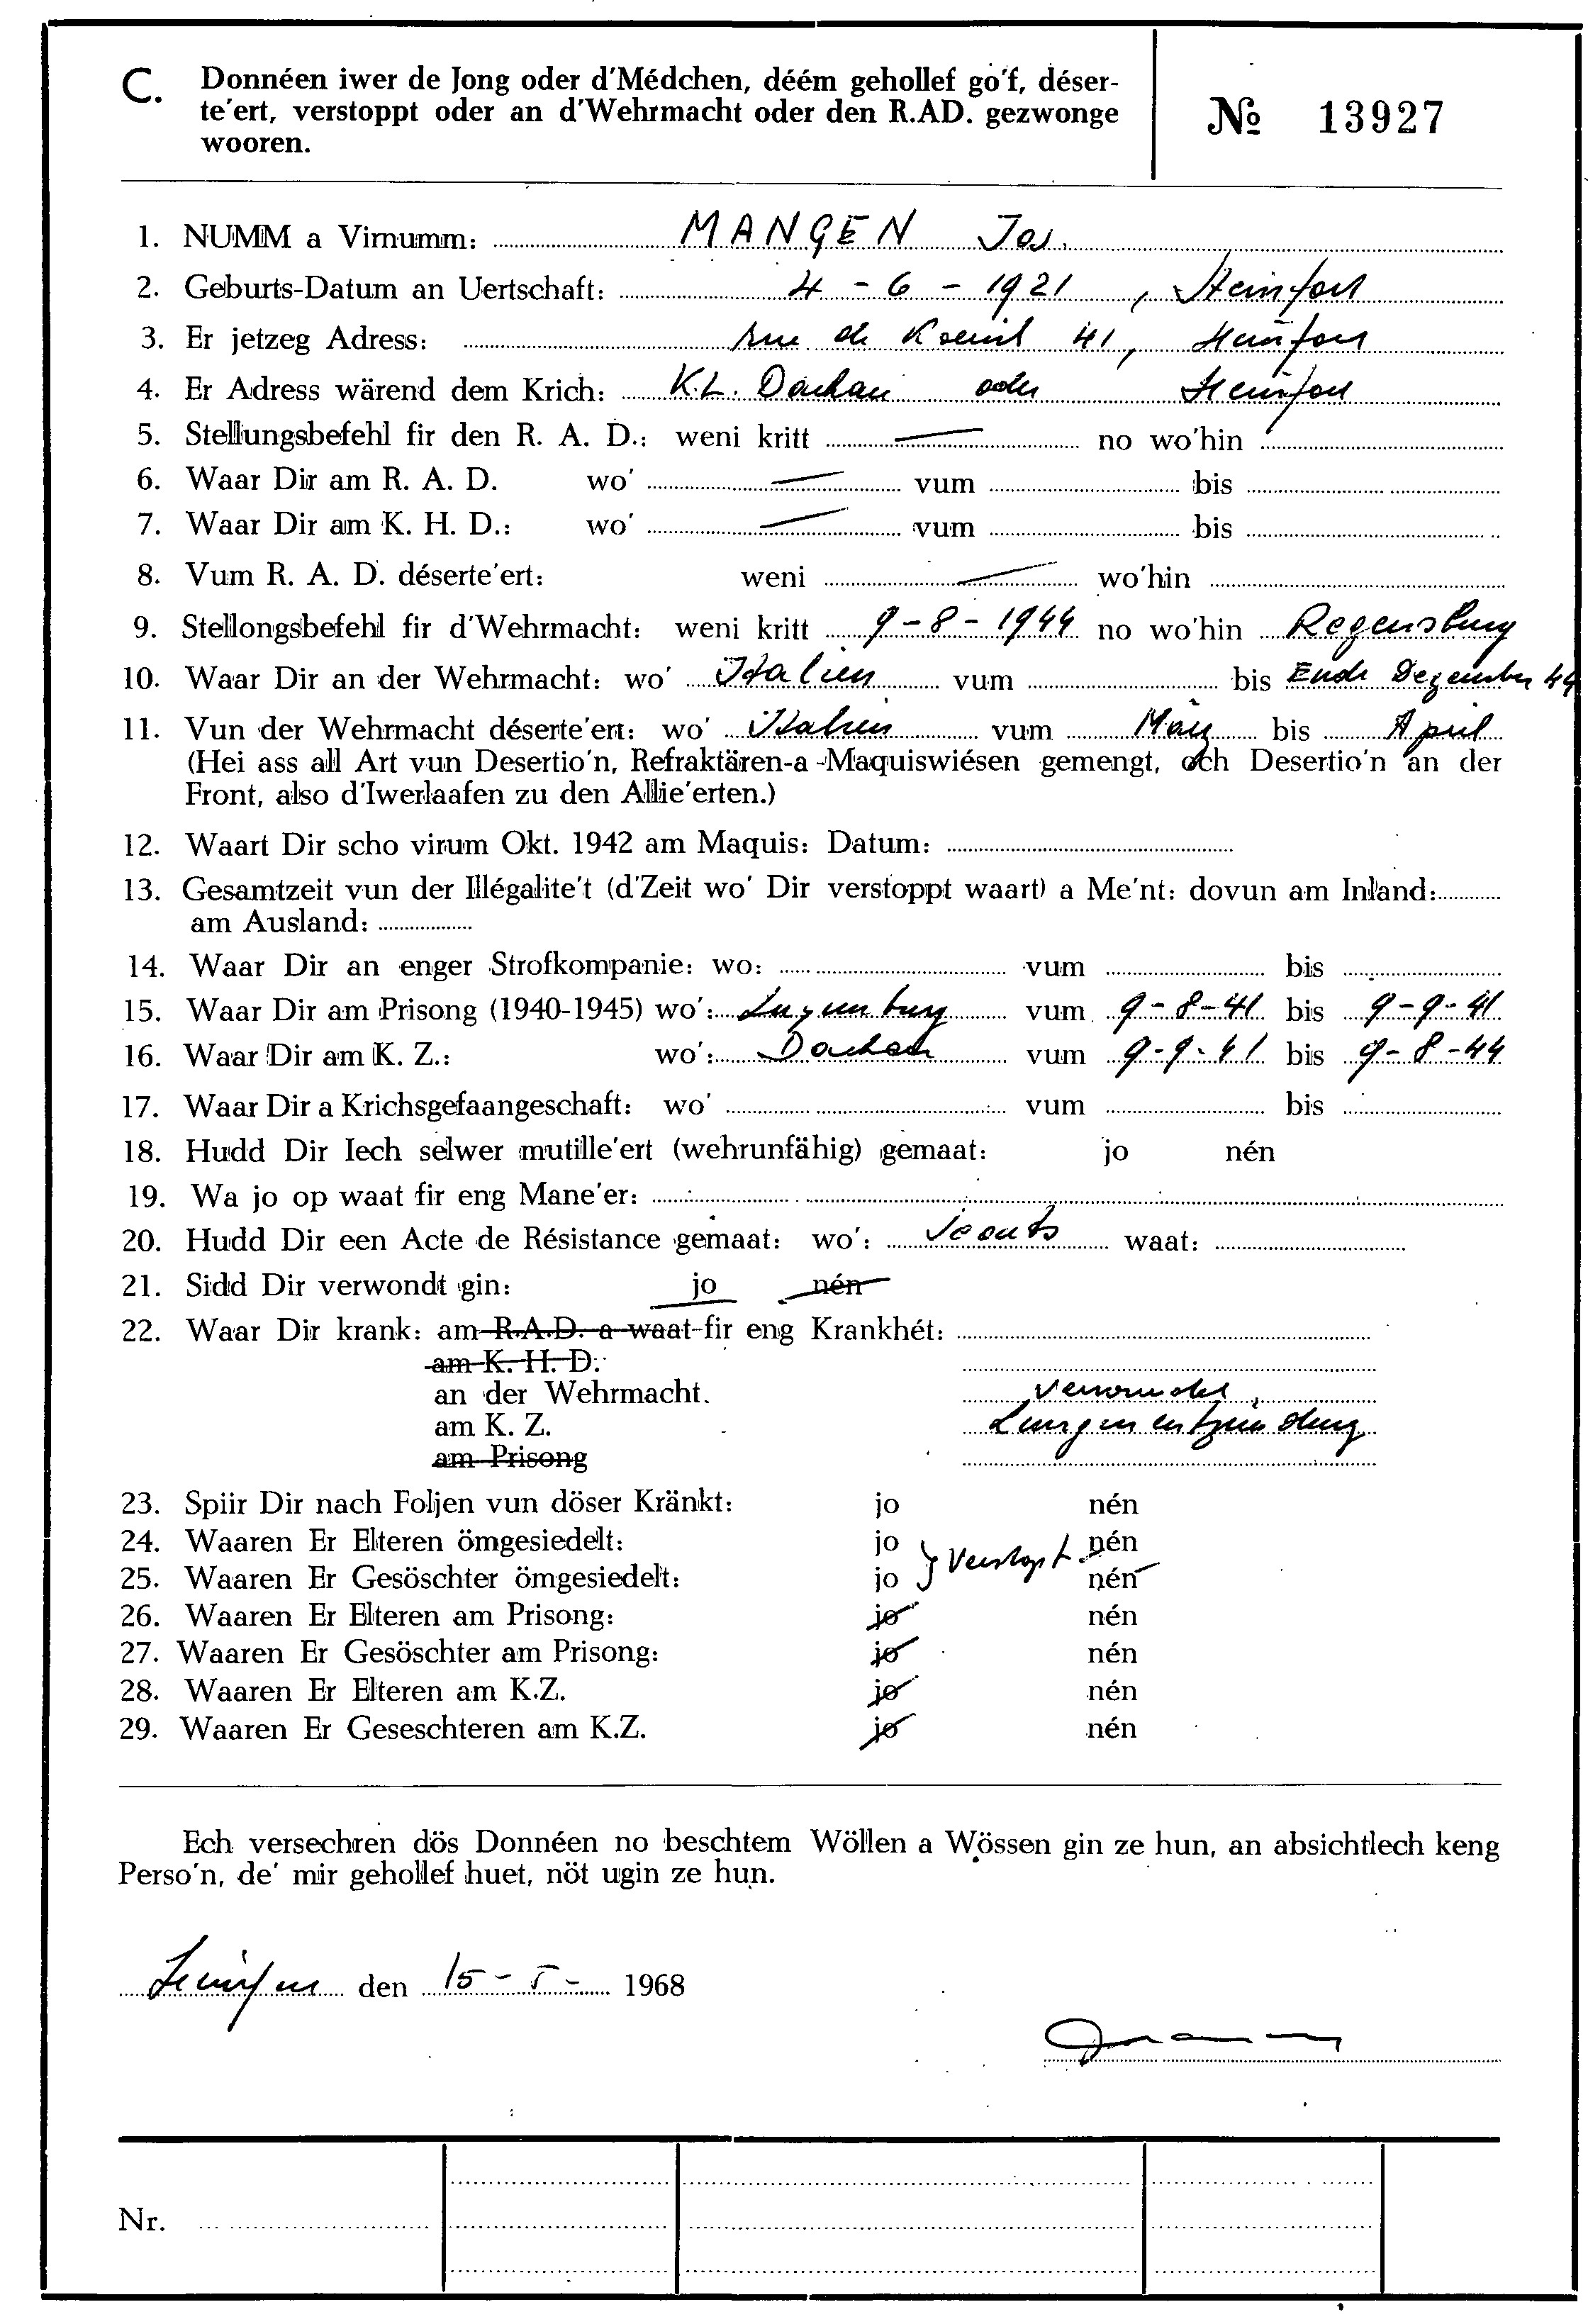 C. Donnéen iwer de Jong oder d'Médchen, déém gehollef go'f, déser-
te'ert, verstoppt oder an d'Wehrmacht oder den R.AD. gezwonge
wooren.
№ 13927
1. NUMM a Virnumm: MANGEN Jos.
2. Geburts-Datum an Uertschaft: 4 - 6 - 1921, Steinfort
3. Er jetzeg Adress: rue de Koerich 41, Steinfort
4. Er Adress wärend dem Krich: K.L. Dachau oder Steinfort
5. Stellungsbefehl fir den R. A. D.: weni kritt — no wo'hin
6. Waar Dir am R. A. D. wo' — vum bis
7. Waar Dir am K. H. D.: wo' — vum bis
8. Vum R. A. D. déserte'ert: weni — wo'hin
9. Stellongsbefehl fir d'Wehrmacht: weni kritt 9-8-1944 no wo'hin Regensburg
10. Waar Dir an der Wehrmacht: wo' Italien vum bis Ende Dezember 44
11. Vun der Wehrmacht déserte'ert: wo' Italien vum März bis April
(Hei ass all Art vun Desertio'n, Refraktären-a-Maquiswiésen gemengt, och Desertio'n an der
Front, also d'Iwerlaafen zu den Allie'erten.)
12. Waart Dir scho virum Okt. 1942 am Maquis: Datum:
13. Gesamtzeit vun der Illégalite't (d'Zeit wo' Dir verstoppt waart) a Me'nt: dovun am Inland:
am Ausland:
14. Waar Dir an enger Strofkompanie: wo: vum bis
15. Waar Dir am Prisong (1940-1945) wo': Luxemburg vum 9-8-41 bis 9-9-41
16. Waar Dir am K. Z.: wo': Dachau vum 9-9-41 bis 9-8-44
17. Waar Dir a Krichsgefaangeschaft: wo' vum bis
18. Hudd Dir Iech selwer mutille'ert (wehrunfähig) gemaat: jo nén
19. Wa jo op waat fir eng Mane'er:
20. Hudd Dir een Acte de Résistance gemaat: wo': Scouts waat:
21. Sidd Dir verwondt gin: jo nén
22. Waar Dir krank: am R.A.D. a waat fir eng Krankhét:
am K. H. D.
an der Wehrmacht. verwundet,
am K. Z. Lungenentzündung
am Prisong
23. Spiir Dir nach Foljen vun döser Kränkt: jo nén
24. Waaren Er Elteren ömgesiedelt: jo nén
} Verstopt.
25. Waaren Er Gesöschter ömgesiedelt: jo nén
26. Waaren Er Elteren am Prisong: jo nén
27. Waaren Er Gesöschter am Prisong: jo nén
28. Waaren Er Elteren am K.Z. jo nén
29. Waaren Er Geseschteren am K.Z. jo nén
Ech versechren dös Donnéen no beschtem Wöllen a Wössen gin ze hun, an absichtlech keng
Perso'n, de' mir gehollef huet, nöt ugin ze hun.
Steinfort den 15-5- 1968
Nr.